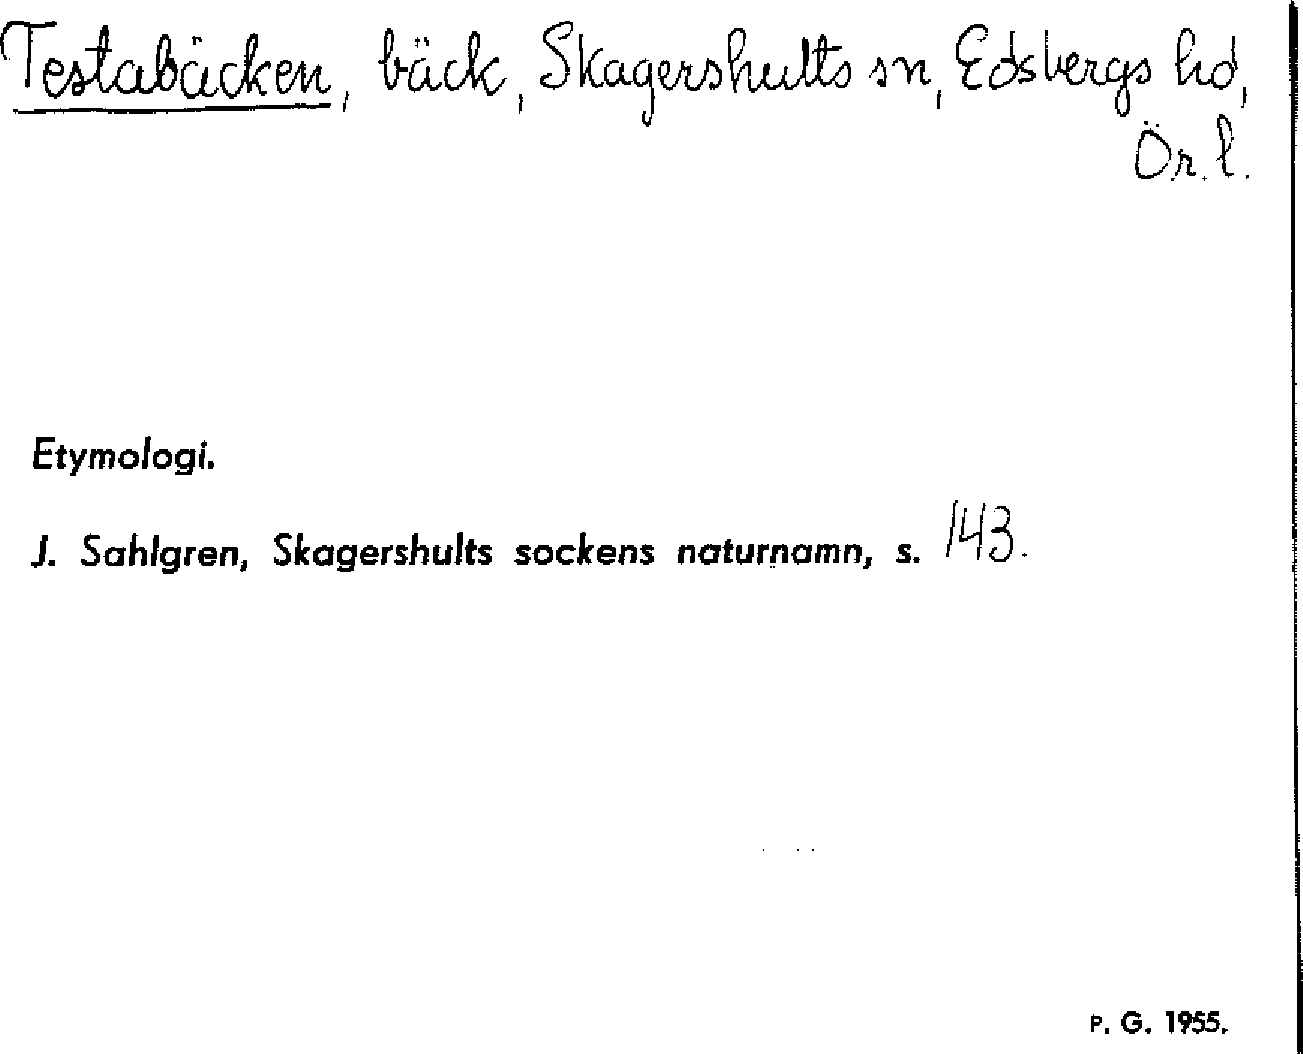 Testabäcken, bäck, Skagershults sn, Edsbergs hd,
Ör. l.
Etymologi.
J. Sahlgren, Skagershults sockens naturnamn, s. 143.
P. G. 1955.